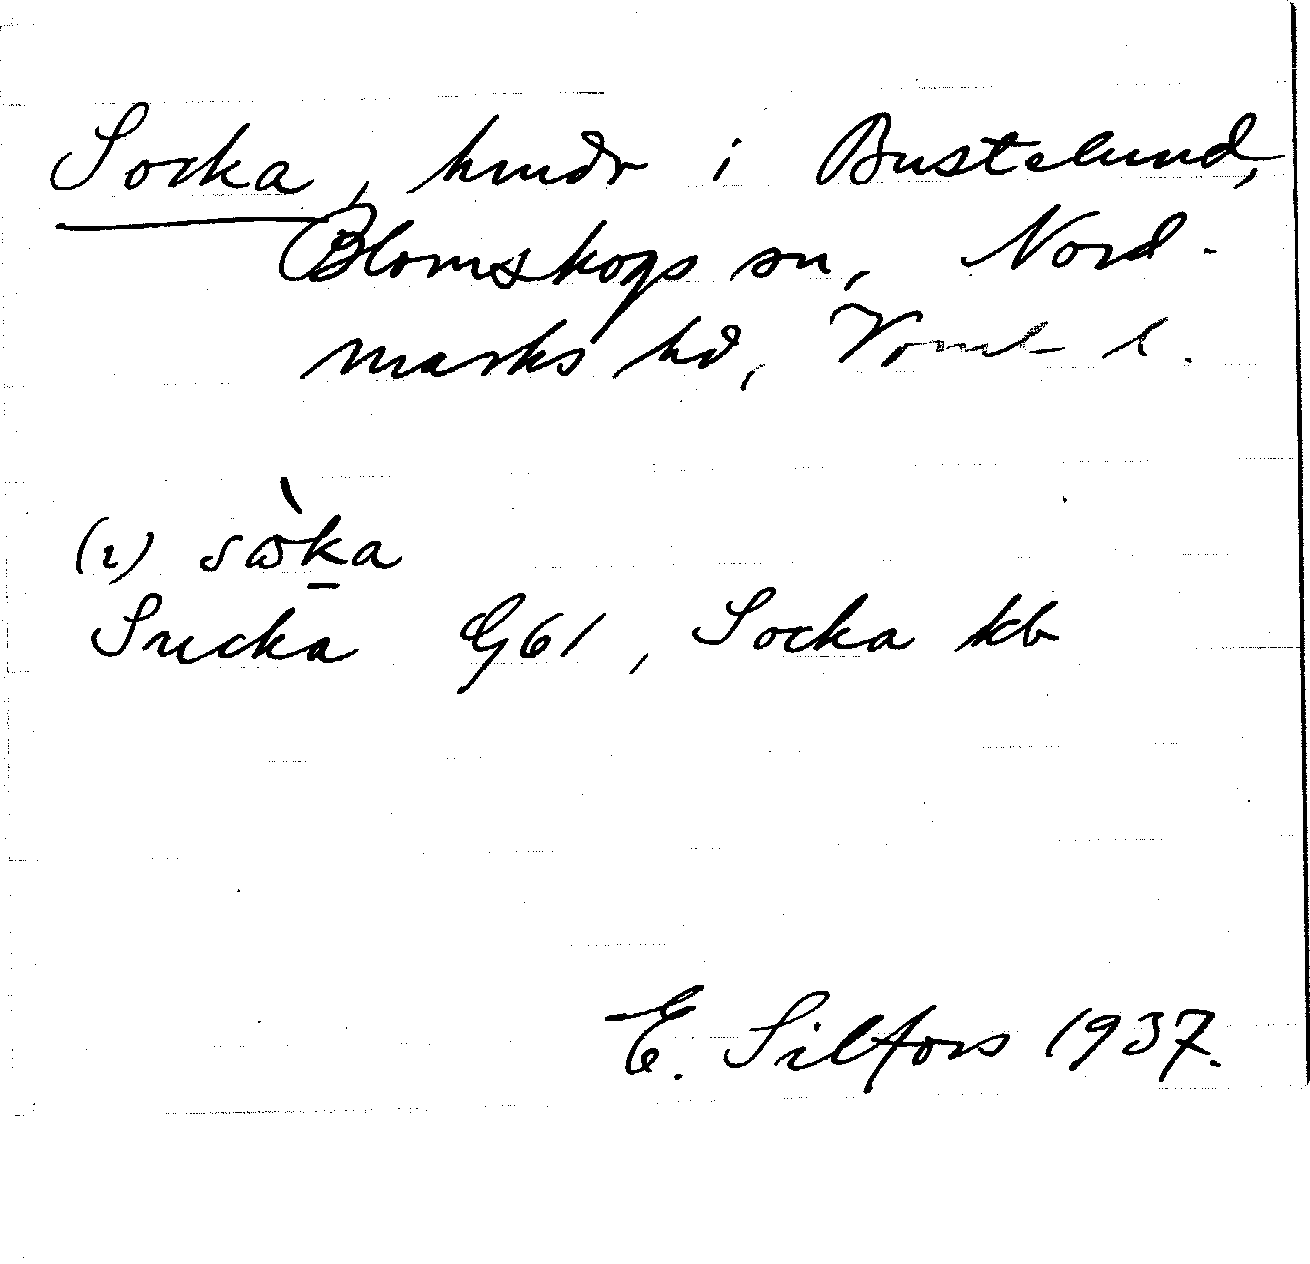 Socka, hmdr i Bustelund,
Blomskogs sn, Nord-
marks hd, Vrml l.
(i) sὼka
Sucka G61, Socka kb
E. Silfors 1937.